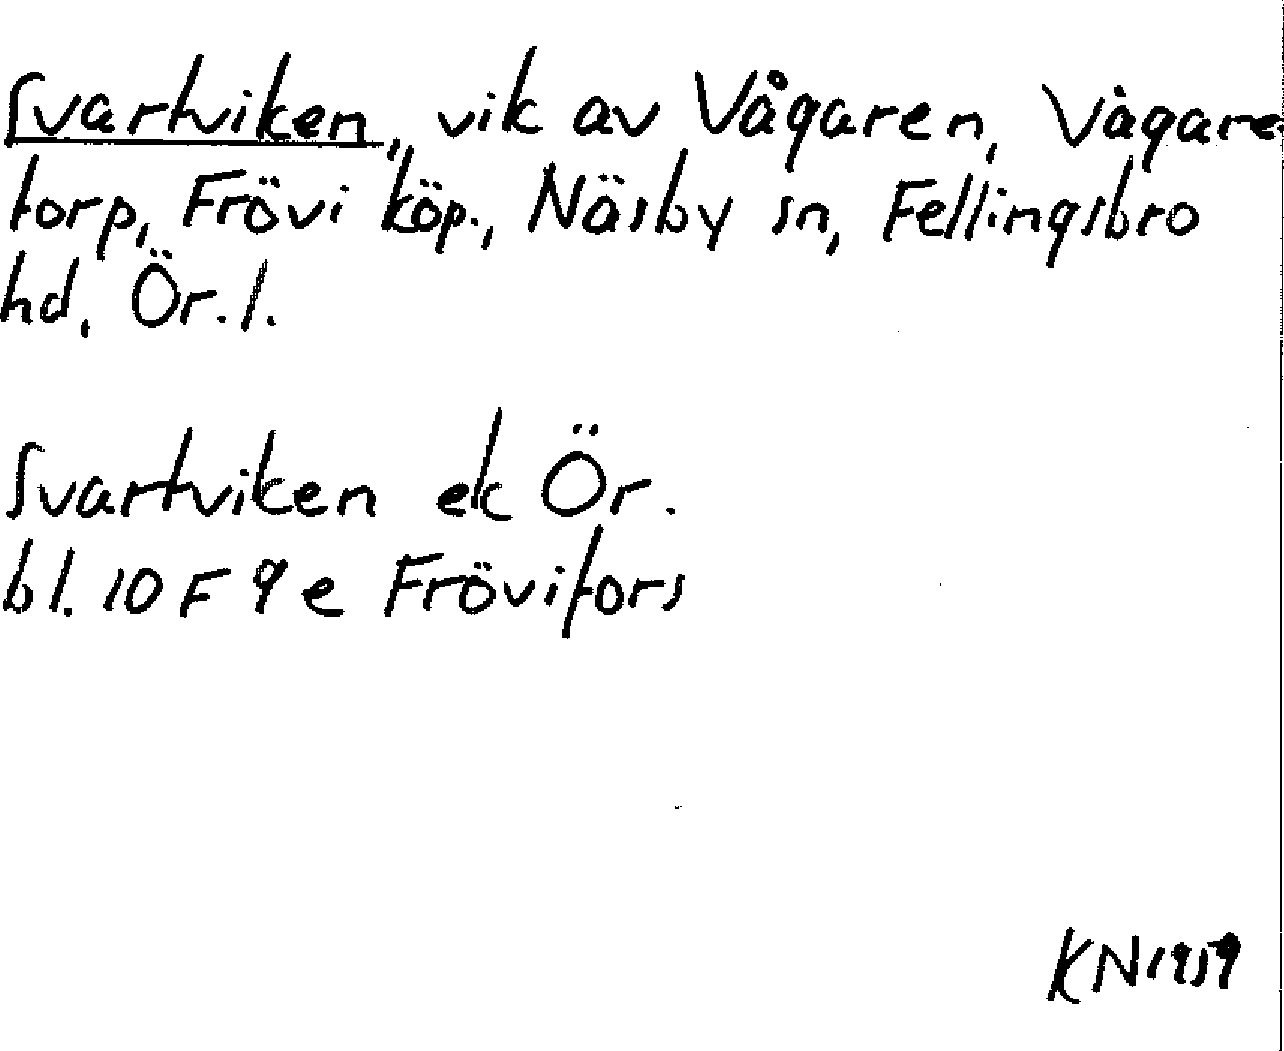 Svartviken, vik av Vågaren, Vågare
torp, Frövi köp., Näsby sn, Fellingsbro
hd, Ör. l.
Svartviken ek Ör.
bl. 10 F 9 e Frövifors
KN 1959